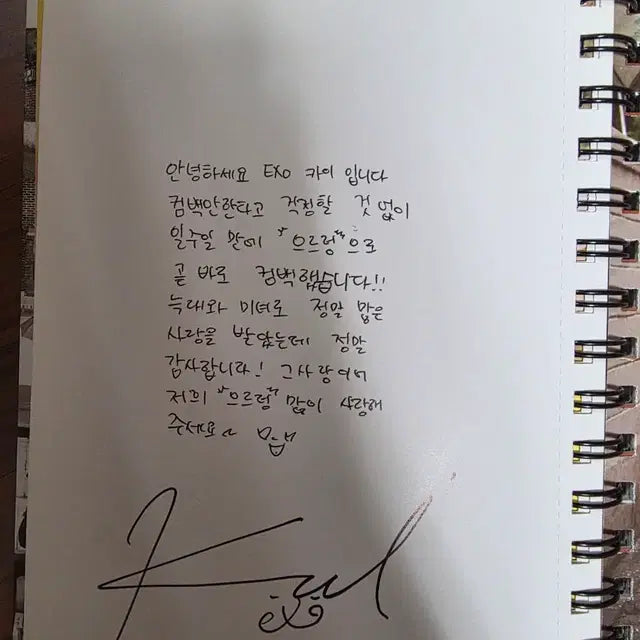 안녕하세요 EXO 카이 입니다
컴백안한다고 걱정할 것 없이
일주일 만에 "으르렁"으로
곧 바로 컴백했습니다!!
늑대와 미녀로 정말 많은
사랑을 받았는데 정말
감사합니다! 그사랑이어
저희 "으르렁" 많이 사랑해
주세요~